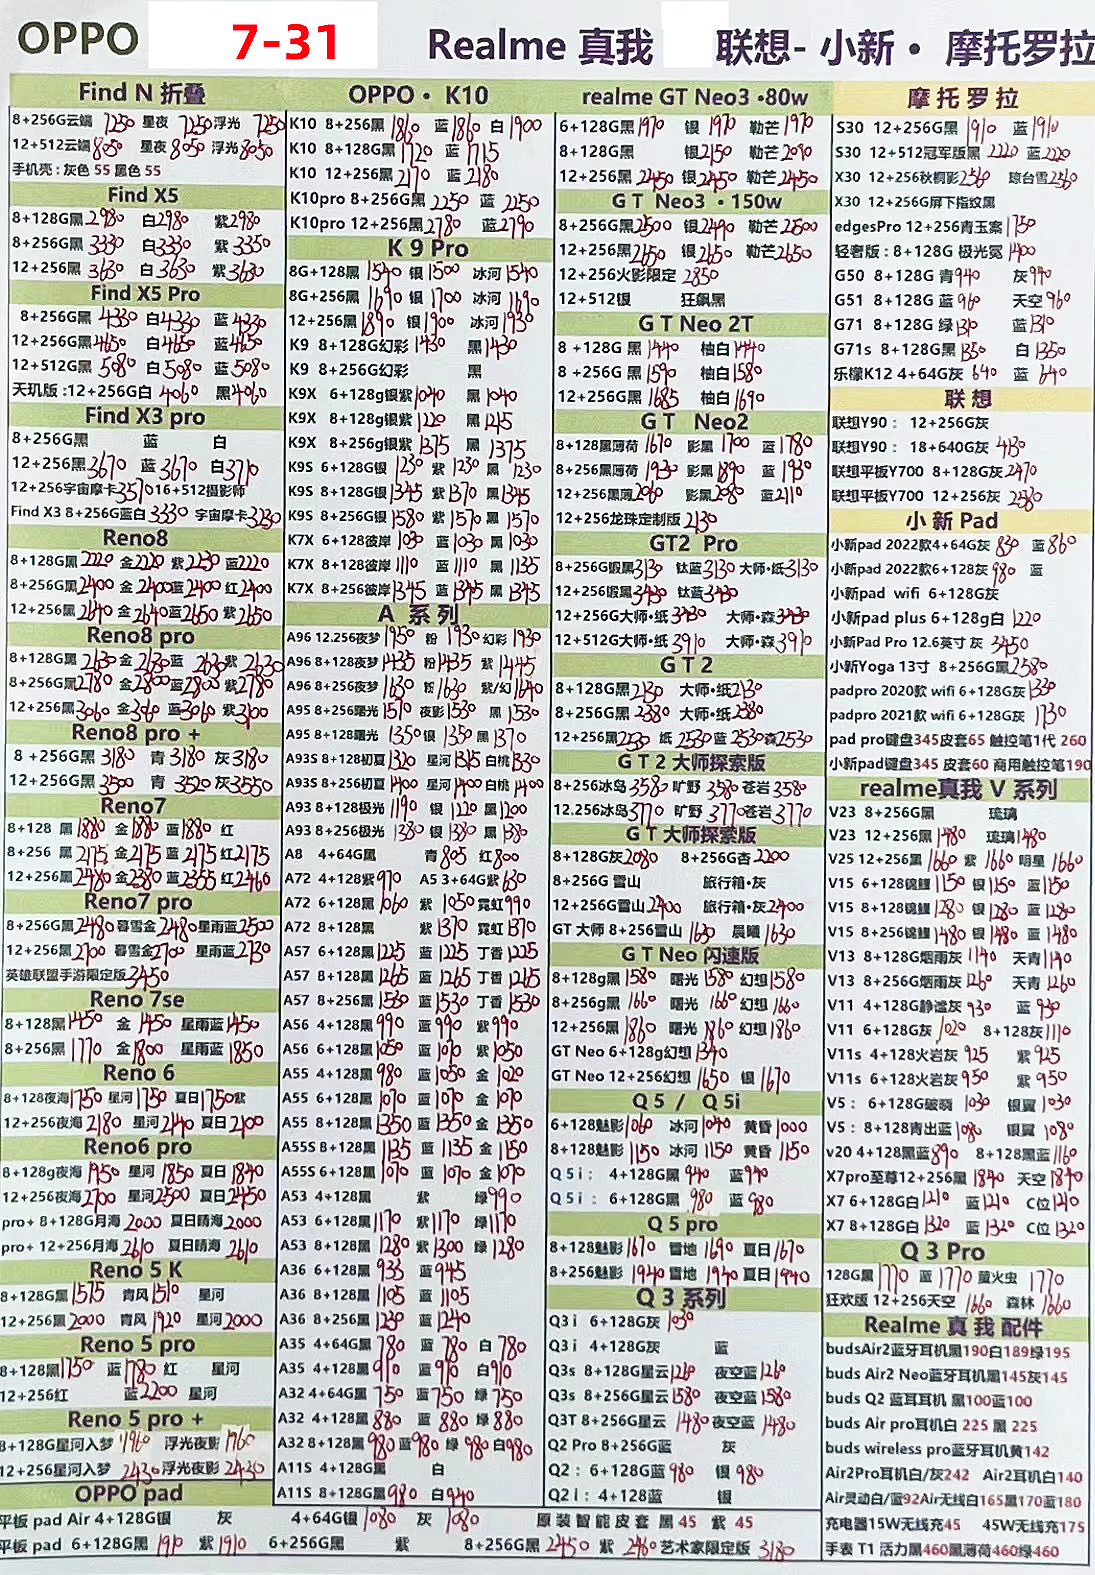 OPPO 7-31 Realme 真我 联想- 小新 • 摩托罗拉
Find N 折叠
8+256G云端 7250 星夜 7250 浮光 7250
12+512云端 8050 星夜 8050 浮光 8050
手机壳 : 灰色 55 黑色 55
Find X5
8+128G黑 2980 白 2980 紫 2980
8+256G黑 3330 白 3330 紫 3350
12+256黑 3630 白 3630 紫 3630
Find X5 Pro
8+256G黑 4330 白 4330 蓝 4330
12+256G黑 4650 白 4650 蓝 4650
12+512G黑 5080 白 5080 蓝 5080
天玑版 :12+256G白 4060 黑 4060
Find X3 pro
8+256G黑 蓝 白
12+256黑 3670 蓝 3670 白 3710
12+256宇宙摩卡 3570 16+512摄影师
Find X3 8+256G蓝白 3330 宇宙摩卡 3230
Reno8
8+128G黑 2220 金 2220 紫 2230 蓝 2220
8+256G黑 2400 金 2400 蓝 2400 红 2400
12+256黑 2640 金 2640 蓝 2650 紫 2650
Reno8 pro
8+128G黑 2630 金 2630 蓝 2630 紫 2630
8+256G黑 2780 金 2800 蓝 2800 紫 2780
12+256黑 3060 金 3060 蓝 3060 紫 3100
Reno8 pro +
8 +256G黑 3180 青 3180 灰 3180
12+256G黑 3500 青 3520 灰 3550
Reno7
8+128 黑 1880 金 1880 蓝 1880 红
8+256 黑 2175 金 2175 蓝 2175 红 2175
12+256黑 2480 金 2380 蓝 2355 红 2460
Reno7 pro
8+256G黑 2480 暮雪金 2480 星雨蓝 2500
12+256黑 2700 暮雪金 2700 星雨蓝 2730
英雄联盟手游限定版 3450
Reno 7se
8+128黑 1450 金 1450 星雨蓝 1450
8+256黑 1770 金 1800 星雨蓝 1850
Reno 6
8+128夜海 1750 星河 1750 夏日 1750 紫
12+256夜海 2180 星河 2140 夏日 2100
Reno6 pro
8+128g夜海 1950 星河 1850 夏日 1840
12+256夜海 2700 星河 2500 夏日 2450
pro+ 8+128G月海 2000 夏日晴海 2000
pro+ 12+256月海 2610 夏日晴海 2610
Reno 5 K
8+128G黑 1575 青风 1510 星河
12+256黑 2000 青风 1920 星河 2000
Reno 5 pro
8+128黑 1750 蓝 1780 红 星河
12+256红 蓝 2200 星河
Reno 5 pro +
8+128G星河入梦 1960 浮光夜影 1960
12+256星河入梦 2430 浮光夜影 2430
OPPO pad
平板 pad Air 4+128G银 灰 4+64G银 1080 灰 1080 原装智能皮套 黑 45 紫 45
平板 pad 6+128G黑 1910 紫 1910 6+256G黑 紫 8+256G黑 2450 紫 2460 艺术家限定版 3180
OPPO • K10
K10 8+256黑 1860 蓝 1860 白 1900
K10 8+128黑 1720 蓝 1715
K10 12+256黑 2170 蓝 2180
K10pro 8+256G黑 2250 蓝 2250
K10pro 12+256黑 2780 蓝 2790
K 9 Pro
8G+128黑 1540 银 1500 冰河 1540
8G+256黑 1690 银 1700 冰河 1690
12+256黑 1890 银 1900 冰河 1930
K9 8+128G幻彩 1430 黑 1430
K9 8+256G幻彩 黑
K9X 6+128g银紫 1040 黑 1040
K9X 8+128g银紫 1220 黑 1215
K9X 8+256g银紫 1375 黑 1375
K9S 6+128G银 1230 紫 1230 黑 1230
K9S 8+128G银 1345 紫 1370 黑 1345
K9S 8+256G银 1580 紫 1570 黑 1570
K7X 6+128彼岸 1030 蓝 1030 黑 1030
K7X 8+128彼岸 1110 蓝 1110 黑 1135
K7X 8+256彼岸 1345 蓝 1345 黑 1345
A 系列
A96 12.256夜梦 1950 粉 1930 幻彩 1930
A96 8+128夜梦 1435 粉 1435 紫 1445
A96 8+256夜梦 1630 粉 1630 紫/幻 1640
A95 8+256曙光 1570 夜影 1530 黑 1530
A95 8+128曙光 1350 银 1350 黑 1370
A93S 8+128初夏 1320 星河 1315 白桃 1330
A93S 8+256初夏 1400 星河 1400 白桃 1400
A93 8+128极光 1190 银 1120 黑 1200
A93 8+256极光 1380 银 1380 黑 1380
A8 4+64G黑 青 805 红 800
A72 4+128紫 970 A5 3+64G紫 630
A72 6+128黑 1060 紫 1050 霓虹 990
A72 8+128黑 紫 1370 霓虹 1370
A57 8+128黑 1225 蓝 1225 丁香 1225
A57 8+128黑 1265 蓝 1265 丁香 1265
A57 8+256黑 1530 蓝 1530 丁香 1530
A56 4+128黑 990 蓝 990 紫 990
A56 6+128黑 1050 蓝 1070 紫 1050
A55 4+128黑 980 蓝 1050 金 1020
A55 6+128黑 1070 蓝 1070 金 1070
A55 8+128黑 1350 蓝 1350 金 1350
A55S 8+128黑 1135 蓝 1135 金 1150
A55S 6+128黑 1070 蓝 1070 金 1070
A53 4+128黑 紫 绿 990
A53 6+128黑 1170 紫 1170 绿 1170
A53 8+128黑 1280 紫 1300 绿 1280
A36 6+128黑 935 蓝 945
A36 8+128黑 1105 蓝 1105
A36 8+256黑 1230 蓝 1240
A35 4+64G黑 780 蓝 780 白 780
A35 4+128黑 910 蓝 910 白 910
A32 4+64G黑 750 蓝 750 绿 750
A32 4+128黑 880 蓝 880 绿 880
A32 8+128黑 980 蓝 980 绿 980 白 980
A11S 4+128G黑 白
A11S 8+128G黑 980 白 940
realme GT Neo3 •80w
6+128G黑 1970 银 1970 勒芒 1970
8+128G黑 银 2150 勒芒 2090
12+256黑 2450 银 2450 勒芒 2450
G T Neo3 • 150w
8+256G黑 2500 银 2490 勒芒 2500
12+256黑 2650 银 2650 勒芒 2650
12+256火影限定 2850
12+512银 狂飙黑
G T Neo 2T
8 +128G 黑 1440 柚白 1440
8 +256G 黑 1590 柚白 1580
12+256G黑 1685 柚白 1690
G T Neo2
8+128黑薄荷 1670 影黑 1700 蓝 1780
8+256黑薄荷 1930 影黑 1890 蓝 1930
12+256黑薄 2060 影黑 2080 蓝 2110
12+256龙珠定制版 2130
GT2 Pro
8+256G锻黑 3130 钛蓝 3130 大师•纸 3130
12+256锻黑 3430 钛蓝 3430
12+256G大师•纸 3430 大师•森 3430
12+512G大师•纸 3910 大师•森 3910
G T 2
8+128G黑 2130 大师•纸 2130
8+256G黑 2380 大师•纸 2380
12+256黑 2530 纸 2530 蓝 2530 森 2530
G T 2 大师探索版
8+256冰岛 3580 旷野 3580 苍岩 3580
12.256冰岛 3770 旷野 3770 苍岩 3770
G T 大师探索版
8+128G灰 2080 8+256G杏 2200
8+256G 雪山 旅行箱•灰
12+256G雪山 2400 旅行箱•灰 2400
GT 大师 8+256雪山 1650 晨曦 1630
G T Neo 闪速版
8+128g黑 1580 曙光 1580 幻想 1580
8+256g黑 1660 曙光 1660 幻想 1660
12+256黑 1860 曙光 1860 幻想 1860
GT Neo 6+128g幻想 1340
GT Neo 12+256幻想 1650 银 1670
Q 5 / Q 5i
6+128魅影 1060 冰河 1040 黄昏 1000
8+128魅影 1150 冰河 1150 黄昏 1150
Q 5i : 4+128G黑 940 蓝 940
Q 5i : 6+128G黑 980 蓝 980
Q 5 pro
8+128魅影 1670 雪地 1690 夏日 1670
8+256魅影 1940 雪地 1940 夏日 1940
Q 3 系列
Q3i 6+128G灰 1030
Q3i 4+128G灰 蓝
Q3s 8+128G星云 1260 夜空蓝 1260
Q3s 8+256G星云 1580 夜空蓝 1580
Q3T 8+256G星云 1480 夜空蓝 1480
Q2 Pro 8+256G蓝 灰
Q2 : 6+128G蓝 980 银 980
Q2i : 4+128蓝 银
摩托罗拉
S30 12+256G黑 1910 蓝 1910
S30 12+512冠军版黑 2220 蓝 2220
X30 12+256秋桐影 2560 琼台雪 2560
X30 12+256G屏下指纹黑
edgesPro 12+256青玉案 1750
轻奢版 : 8+128G 极光冕 1400
G50 8+128G 青 940 灰 940
G51 8+128G 蓝 960 天空 960
G71 8+128G 绿 1310 蓝 1310
G71s 8+128G黑 1350 白 1350
乐檬K12 4+64G灰 640 蓝 640
联 想
联想Y90 : 12+256G灰
联想Y90 : 18+640G灰 4130
联想平板Y700 8+128G灰 2470
联想平板Y700 12+256灰 2580
小 新 Pad
小新pad 2022款4+64G灰 830 蓝 860
小新pad 2022款6+128灰 980 蓝
小新pad wifi 6+128G灰
小新pad plus 6+128g白 1220
小新Pad Pro 12.6英寸 灰 3450
小新Yoga 13寸 8+256G黑 2580
padpro 2020款 wifi 6+128G灰 1330
padpro 2021款 wifi 6+128G灰 1730
pad pro键盘345皮套65 触控笔1代 260
小新pad键盘345 皮套60 商用触控笔190
realme真我 V 系列
V23 8+256G黑 琉璃
V23 12+256黑 1480 琉璃 1480
V25 12+256黑 1660 紫 1660 明星 1660
V15 6+128锦鲤 1150 银 1150 蓝 1150
V15 8+128锦鲤 1280 银 1280 蓝 1280
V15 8+256锦鲤 1480 银 1480 蓝 1480
V13 8+128G烟雨灰 1140 天青 1140
V13 8+256G烟雨灰 1260 天青 1260
V11 4+128G静谧灰 930 蓝 930
V11 6+128G灰 1020 8+128灰 1110
V11s 4+128火岩灰 925 紫 925
V11s 6+128火岩灰 950 紫 950
V5 : 6+128G破晓 1030 银翼 1030
V5 : 8+128青出蓝 1080 银翼 1080
v20 4+128黑蓝 890 8+128黑蓝 1160
X7pro至尊12+256黑 1840 天空 1840
X7 6+128G白 1210 蓝 1210 C位 1210
X7 8+128G白 1320 蓝 1320 C位 1320
Q 3 Pro
128G黑 1770 蓝 1770 萤火虫 1770
狂欢版 12+256天空 1660 森林 1660
Realme 真 我 配件
budsAir2蓝牙耳机黑190白189绿195
buds Air2 Neo蓝牙耳机黑145灰145
buds Q2 蓝耳耳机 黑100蓝100
buds Air pro耳机白 225 黑 225
buds wireless pro蓝牙耳机黄142
Air2Pro耳机白/灰242 Air2耳机白140
Air灵动白/蓝92Air无线白165黑170蓝180
充电器15W无线充45 45W无线充175
手表 T1 活力黑460黑薄荷460绿460